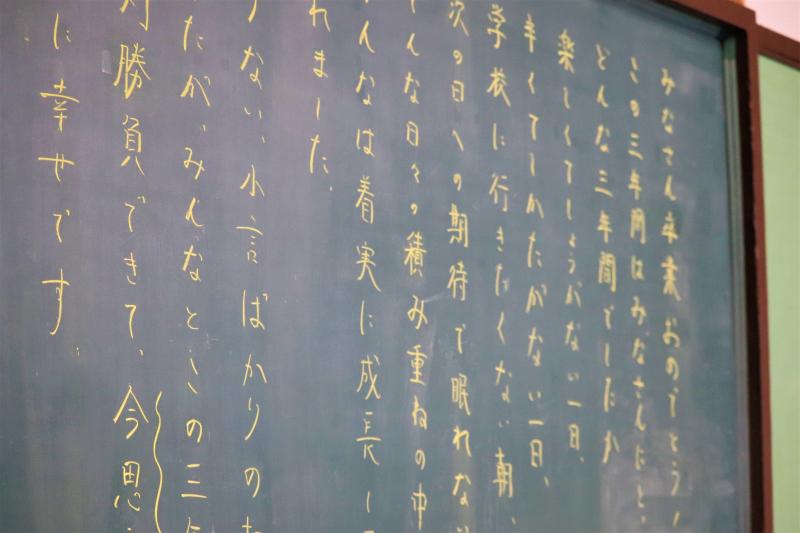 みなさん卒業おめでとう！
この三年間はみなさんにと
どんな三年間でしたか
楽しくてしょうがない一日、
辛くてしかたがない一日、
学校に行きたくない朝、
次の日への期待で眠れな
んな日々の積み重ねの中
んなは着実に成長し
れました。
ない、小言ばかりの
たが、みんなとこの三年
勝負できて、今思
に幸せです。